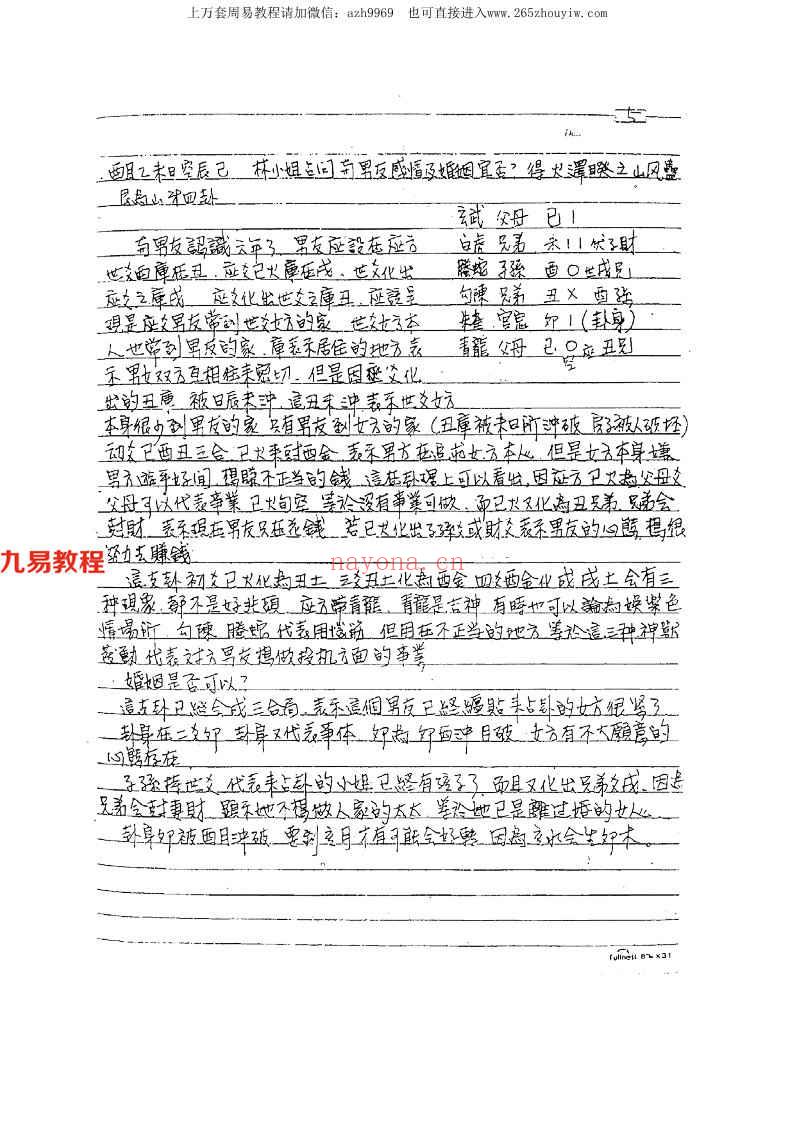 上万套周易教程请加微信：azh9969 也可直接进入www.265zhouyiw.com
5
酉月乙未日空辰巳 林小姐占问 男友感情及婚姻宜否？得火澤睽之山风蠱
艮為山 第四卦
玄武 父母 巳 1
男友認識六年了、男友应設在应方 白虎 兄弟 未11伏子財
世爻酉庫在丑、应爻巳火庫在戌、世爻化出 螣蛇 子孫 酉O世戌兄
应爻之庫戌 应爻化出世爻之庫丑、应該是 勾陳 兄弟 丑X 酉孫
現是应爻男友常到世爻女方的家、世爻女方本 朱雀 官鬼 卯1(卦身)
人也常到男友的家、庫表示居住的地方表 青龍 父母 巳O应丑兄
示男女双方互相往来密切、但是因应爻化 空
出的丑庫 被日辰未沖、這丑未沖 表示世爻女方
本身很少到男友的家 只有男友到女方的家(丑庫被未日所沖破 房子被人破坏)
动爻巳酉丑三合 巳火来尅酉金 表示男方在追求女方本人 但是女方本身嫌
男方 好 想賺不正当的錢 這在卦理上可以看出、因应方巳火為父母爻
父母可以代表事業 巳火旬空 等於没有事業可做 而巳火又化為丑兄弟 兄弟会
尅財 表示現在男友只在花錢 若巳火化出子孫爻或財爻表示男友的心態 想很
努力去賺錢
這支卦初爻巳火化為丑土 三爻丑土化為酉金 四爻酉金化成戌土 会有三
种現象、都不是好兆頭 应方帶青龍 青龍是吉神 有時也可以論為娛樂色
情場所 勾陳 螣蛇 代表用腦筋 但用在不正当的地方 等於這三种神煞
發動 代表对方男友想做投机方面的事業
婚姻是否可以？
這支卦已經合成三合局、表示這個男友已經纏貼来占卦的女方很緊了
卦身在二爻卯 卦身又代表事体 卯為 卯酉沖月破 女方有不大願意的
心態存在
子孫持世爻 代表来占卦的小姐已經有孩子了 而且又化出兄弟爻戌、因為
兄弟会尅妻財 顯示她不想做人家的太太 等於她已是離过婚的女人
卦身卯被酉月沖破 要到亥月才有可能会好轉 因為亥水会生卯木。
九易教程
nayona.cn
fullness 82 x 31